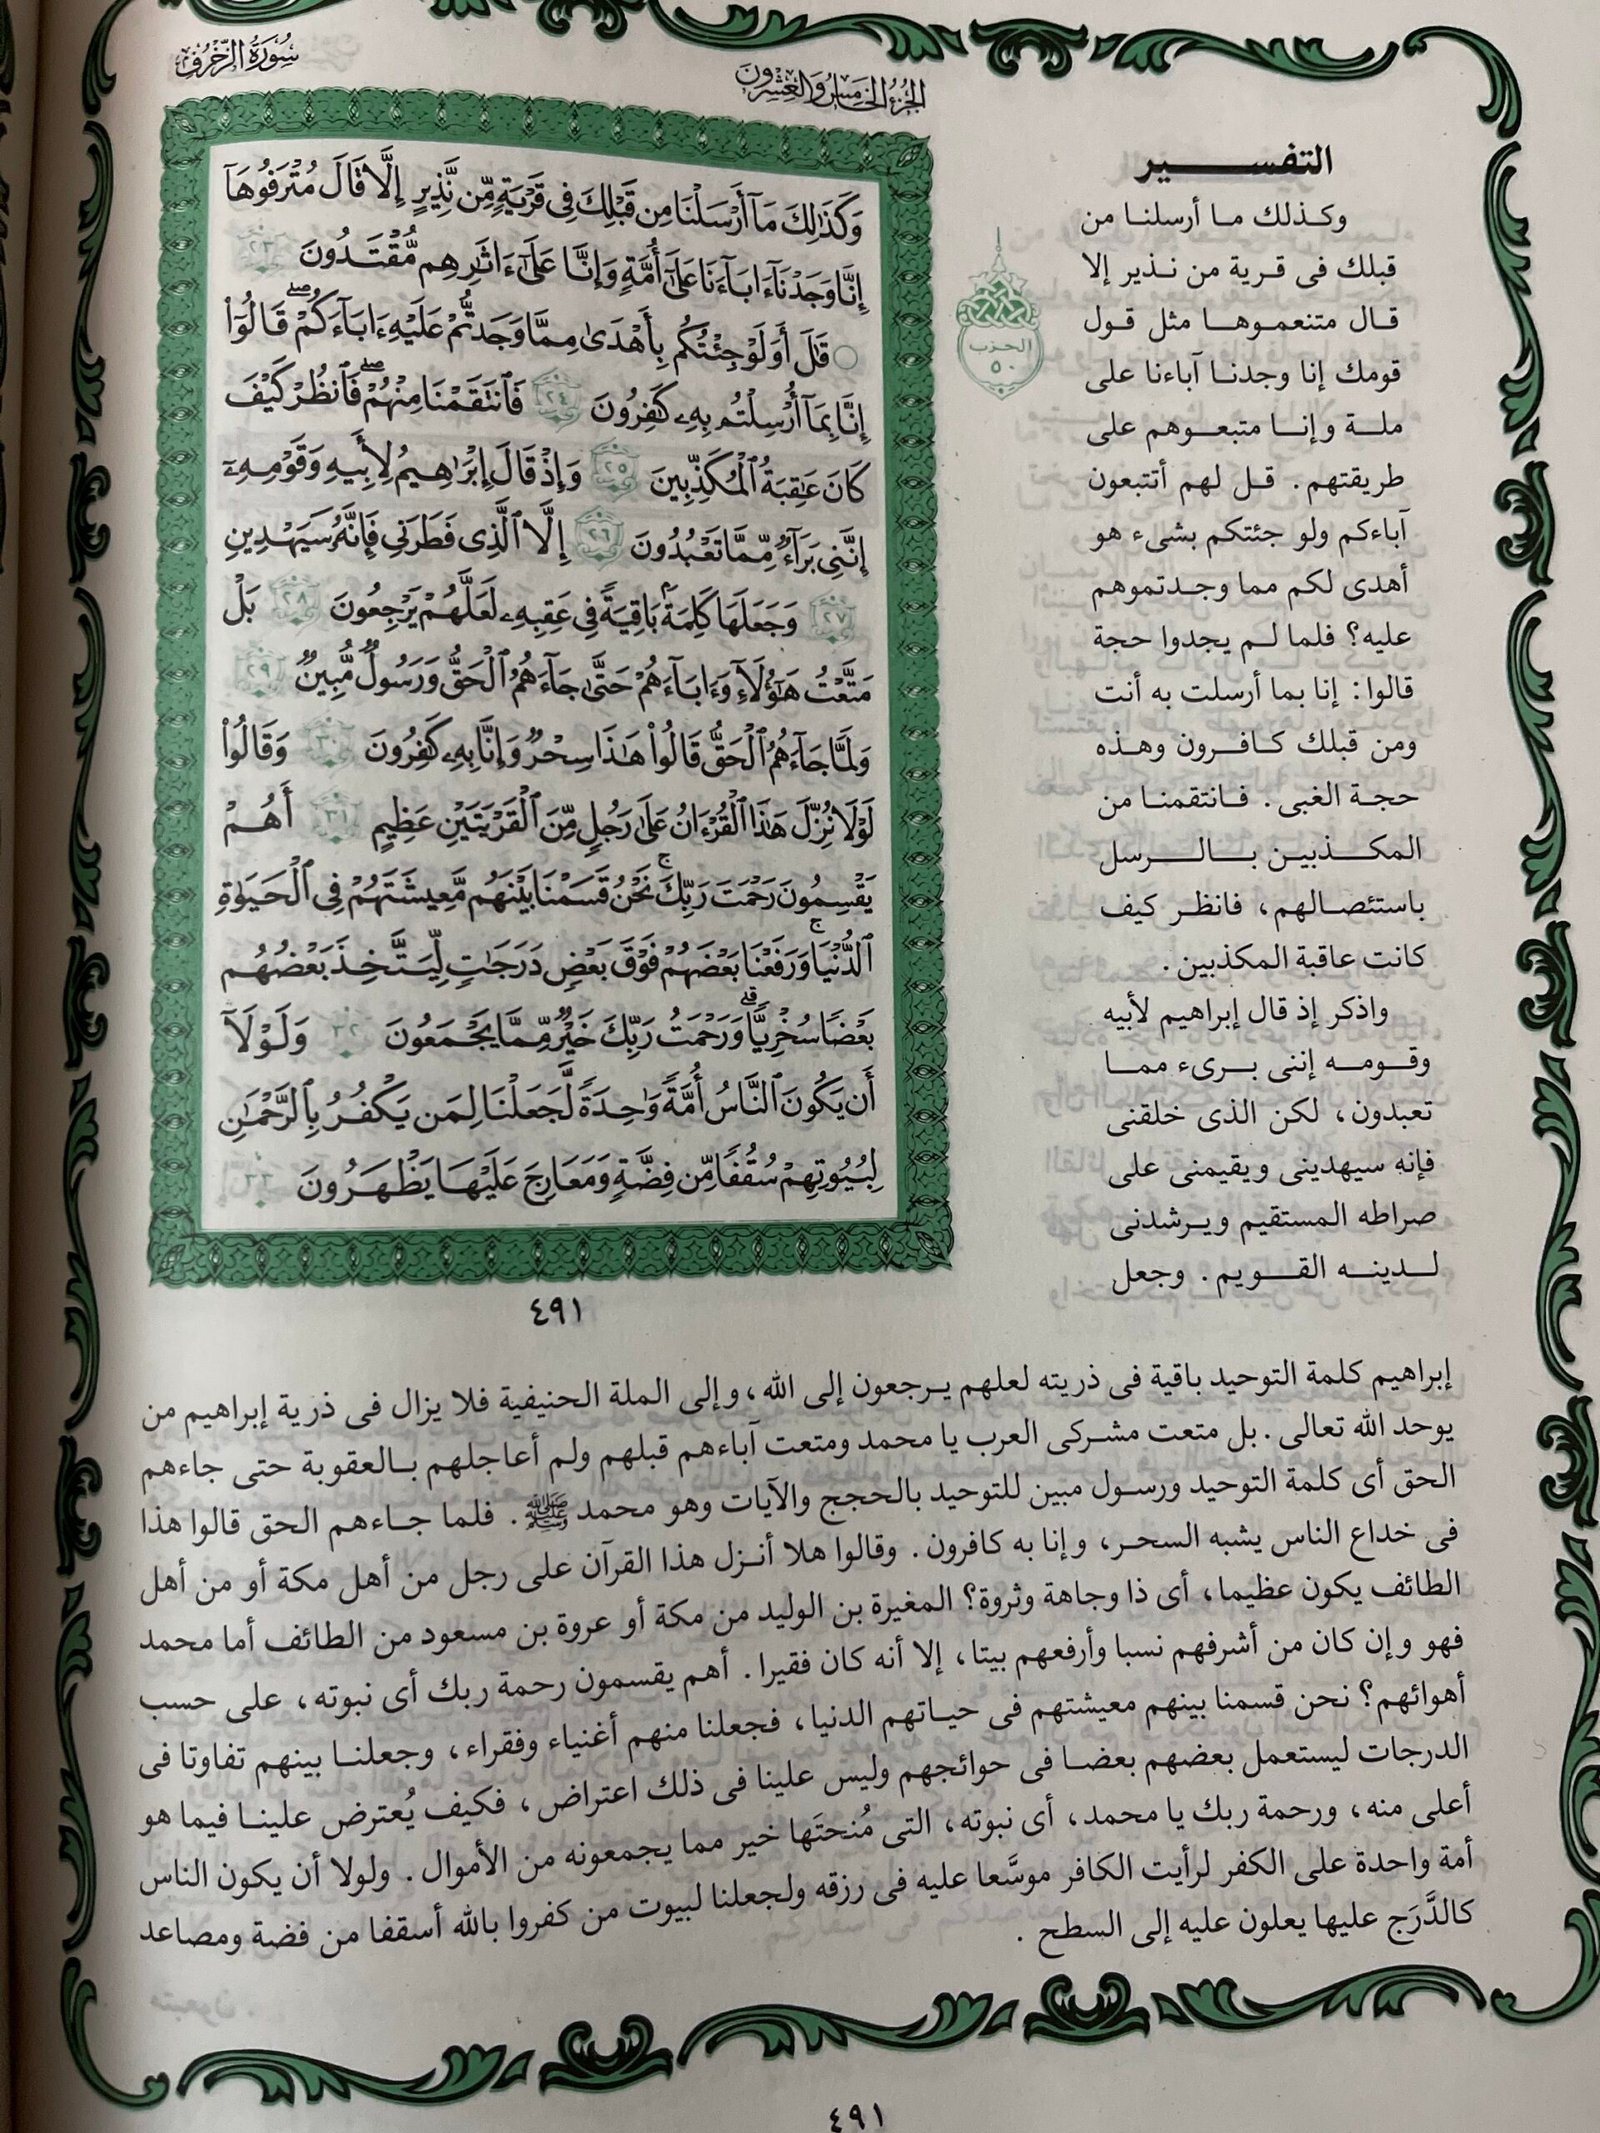 سُورَةُ الزُّخْرُفِ
الجُزْءُ الخَامِسُ وَالعِشْرُونَ
وَكَذَٰلِكَ مَآ أَرْسَلْنَا مِن قَبْلِكَ فِى قَرْيَةٍ مِّن نَّذِيرٍ إِلَّا قَالَ مُتْرَفُوهَآ
إِنَّا وَجَدْنَآ ءَابَآءَنَا عَلَىٰٓ أُمَّةٍ وَإِنَّا عَلَىٰٓ ءَاثَٰرِهِم مُّقْتَدُونَ ٢٣
قَٰلَ أَوَلَوْ جِئْتُكُم بِأَهْدَىٰ مِمَّا وَجَدتُّمْ عَلَيْهِ ءَابَآءَكُمْ ۖ قَالُوٓا۟
إِنَّا بِمَآ أُرْسِلْتُم بِهِۦ كَٰفِرُونَ ٢٤ فَٱنتَقَمْنَا مِنْهُمْ ۖ فَٱنظُرْ كَيْفَ
كَانَ عَٰقِبَةُ ٱلْمُكَذِّبِينَ ٢٥ وَإِذْ قَالَ إِبْرَٰهِيمُ لِأَبِيهِ وَقَوْمِهِۦٓ
إِنَّنِى بَرَآءٌ مِّمَّا تَعْبُدُونَ ٢٦ إِلَّا ٱلَّذِى فَطَرَنِى فَإِنَّهُۥ سَيَهْدِينِ
٢٧ وَجَعَلَهَا كَلِمَةًۢ بَاقِيَةً فِى عَقِبِهِۦ لَعَلَّهُمْ يَرْجِعُونَ ٢٨ بَلْ
مَتَّعْتُ هَٰٓؤُلَآءِ وَءَابَآءَهُمْ حَتَّىٰ جَآءَهُمُ ٱلْحَقُّ وَرَسُولٌ مُّبِينٌ ٢٩
وَلَمَّا جَآءَهُمُ ٱلْحَقُّ قَالُوا۟ هَٰذَا سِحْرٌ وَإِنَّا بِهِۦ كَٰفِرُونَ ٣٠ وَقَالُوا۟
لَوْلَا نُزِّلَ هَٰذَا ٱلْقُرْءَانُ عَلَىٰ رَجُلٍ مِّنَ ٱلْقَرْيَتَيْنِ عَظِيمٍ ٣١ أَهُمْ
يَقْسِمُونَ رَحْمَتَ رَبِّكَ ۚ نَحْنُ قَسَمْنَا بَيْنَهُم مَّعِيشَتَهُمْ فِى ٱلْحَيَوٰةِ
ٱلدُّنْيَا ۚ وَرَفَعْنَا بَعْضَهُمْ فَوْقَ بَعْضٍ دَرَجَٰتٍ لِّيَتَّخِذَ بَعْضُهُم
بَعْضًا سُخْرِيًّا ۗ وَرَحْمَتُ رَبِّكَ خَيْرٌ مِّمَّا يَجْمَعُونَ ٣٢ وَلَوْلَآ
أَن يَكُونَ ٱلنَّاسُ أُمَّةً وَٰحِدَةً لَّجَعَلْنَا لِمَن يَكْفُرُ بِٱلرَّحْمَٰنِ
لِبُيُوتِهِمْ سُقُفًا مِّن فِضَّةٍ وَمَعَارِجَ عَلَيْهَا يَظْهَرُونَ ٣٣
٤٩١
الحزب
٥٠
التفسير
وكذلك ما أرسلنا من
قبلك فى قرية من نذير إلا
قال متنعموها مثل قول
قومك إنا وجدنا آباءنا على
ملة وإنا متبعوهم على
طريقتهم . قل لهم أتتبعون
آباءكم ولو جئتكم بشىء هو
أهدى لكم مما وجدتموهم
عليه؟ فلما لم يجدوا حجة
قالوا: إنا بما أرسلت به أنت
ومن قبلك كافرون وهذه
حجة الغبى . فانتقمنا من
المكذبين بالرسل
باستئصالهم، فانظر كيف
كانت عاقبة المكذبين .
واذكر إذ قال إبراهيم لأبيه
وقومه إننى برىء مما
تعبدون، لكن الذى خلقنى
فإنه سيهدينى ويقيمنى على
صراطه المستقيم ويرشدنى
لدينه القويم . وجعل
إبراهيم كلمة التوحيد باقية فى ذريته لعلهم يرجعون إلى الله، وإلى الملة الحنيفية فلا يزال فى ذرية إبراهيم من
يوحد الله تعالى . بل متعت مشركى العرب يا محمد ومتعت آباءهم قبلهم ولم أعاجلهم بالعقوبة حتى جاءهم
الحق أى كلمة التوحيد ورسول مبين للتوحيد بالحجج والآيات وهو محمد ﷺ . فلما جاءهم الحق قالوا هذا
فى خداع الناس يشبه السحر، وإنا به كافرون . وقالوا هلا أنزل هذا القرآن على رجل من أهل مكة أو من أهل
الطائف يكون عظيما، أى ذا وجاهة وثروة؟ المغيرة بن الوليد من مكة أو عروة بن مسعود من الطائف أما محمد
فهو وإن كان من أشرفهم نسبا وأرفعهم بيتا، إلا أنه كان فقيرا . أهم يقسمون رحمة ربك أى نبوته، على حسب
أهوائهم؟ نحن قسمنا بينهم معيشتهم فى حياتهم الدنيا، فجعلنا منهم أغنياء وفقراء، وجعلنا بينهم تفاوتا فى
الدرجات ليستعمل بعضهم بعضا فى حوائجهم وليس علينا فى ذلك اعتراض، فكيف يُعترض علينا فيما هو
أعلى منه، ورحمة ربك يا محمد، أى نبوته، التى مُنحتَها خير مما يجمعونه من الأموال . ولولا أن يكون الناس
أمة واحدة على الكفر لرأيت الكافر موسَّعا عليه فى رزقه ولجعلنا لبيوت من كفروا بالله أسقفا من فضة ومصاعد
كالدَّرَج عليها يعلون عليه إلى السطح .
٤٩١